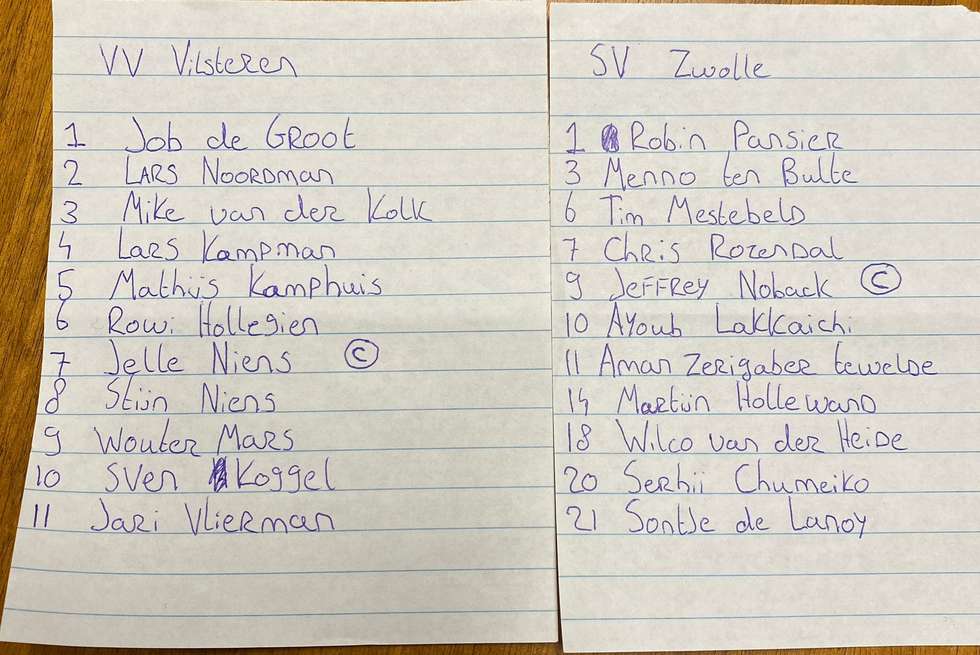 VV Vilsteren
1 Job de Groot
2 Lars Noordman
3 Mike van der Kolk
4 Lars Kampman
5 Mathijs Kamphuis
6 Rowi Hollegien
7 Jelle Niens ©
8 Stijn Niens
9 Wouter Mars
10 Sven Koggel
11 Jari Vlierman
SV Zwolle
1 Robin Pansier
3 Menno ten Bulte
6 Tim Mestebeld
7 Chris Rozendal
9 Jeffrey Noback ©
10 Ayoub Lakkaichi
11 Aman Zerigaber tewelde
14 Martijn Hollewand
18 Wilco van der Heide
20 Serhii Chumeiko
21 Sontje de Lanoy